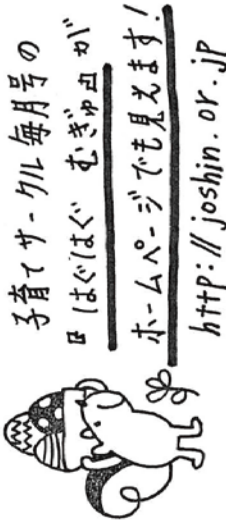 子育てサークル毎月号の
"はぐはぐ むぎゅ"が
ホームページでも見えます!
http://joshin.or.jp